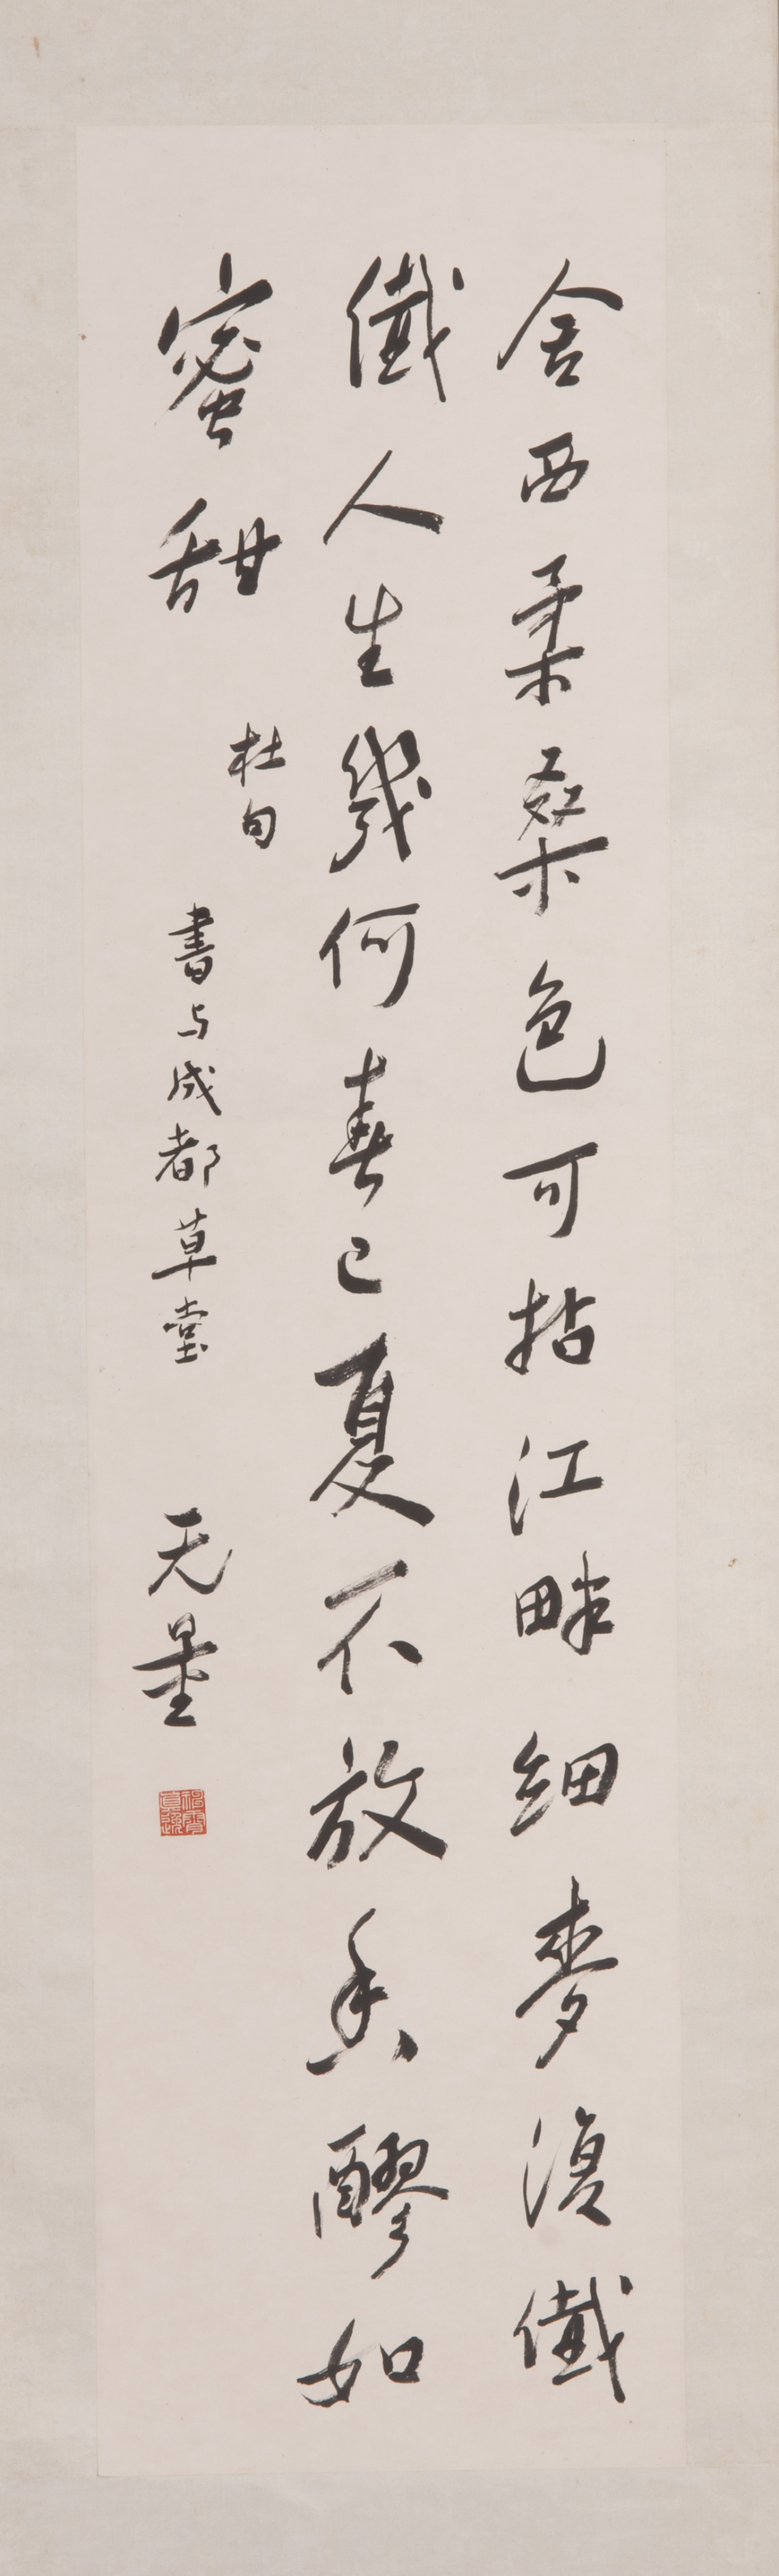 舍西柔桑色可拈江畔细麦復纖
纖人生幾何春已夏不放香醪如
蜜甜
杜句
書与成都草堂
无量